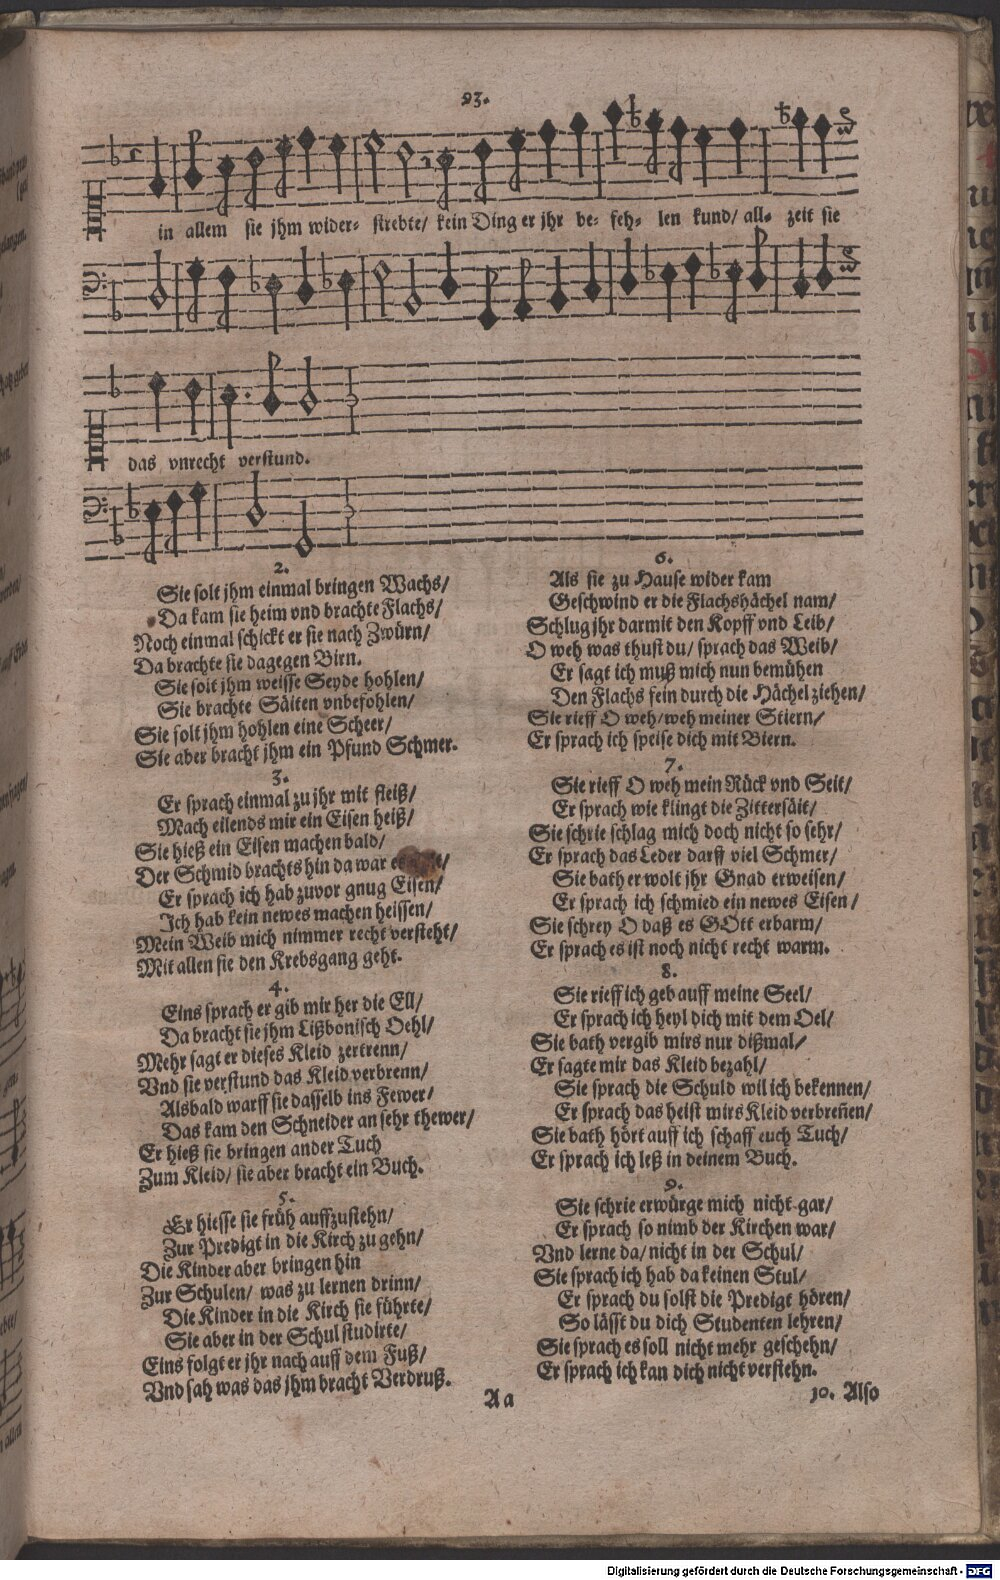 93.
in allem sie jhm wider- strebte/ kein Ding er jhr be- feh- len kund/ all- zeit sie
das vnrecht verstund.
2.
Sie solt jhm einmal bringen Wachs/
Da kam sie heim vnd brachte Flachs/
Noch einmal schickt er sie nach Zwürn/
Da brachte sie dagegen Birn.
Sie solt jhm weisse Seyde hohlen/
Sie brachte Säiten vnbefohlen/
Sie solt jhm hohlen eine Scheer/
Sie aber bracht jhm ein Pfund Schmer.
3.
Er sprach einmal zu jhr mit fleiß/
Mach eilends mir ein Eisen heiß/
Sie hieß ein Eisen machen bald/
Der Schmid brachts hin da war
Er sprach ich hab zuvor gnug Eisen/
Ich hab kein newes machen heissen/
Mein Weib mich nimmer recht versteht/
Mit allen sie den Krebsgang geht.
4.
Eins sprach er gib mir her die Ell/
Da bracht sie jhm Lißbonisch Oehl/
Mehr sagt er dieses Kleid zertrenn/
Vnd sie verstund das Kleid verbrenn/
Alsbald warff sie dasselb ins Fewer/
Das kam den Schneider an sehr thewer/
Er hieß sie bringen ander Tuch
Zum Kleid/ sie aber bracht ein Buch.
5.
Er hiesse sie früh auffzustehn/
Zur Predigt in die Kirch zu gehn/
Die Kinder aber bringen hin
Zur Schulen/ was zu lernen drinn/
Die Kinder in die Kirch sie führte/
Sie aber in der Schul studirte/
Eins folgt er jhr nach auff dem Fuß/
Vnd sah was das jhm bracht Verdruß.
6.
Als sie zu Hause wider kam
Geschwind er die Flachshächel nam/
Schlug jhr darmit den Kopff vnd Leib/
O weh was thust du/ sprach das Weib/
Er sagt ich muß mich nun bemühen
Den Flachs fein durch die Hächel ziehen/
Sie rieff O weh/ weh meiner Stiern/
Er sprach ich speise dich mit Biern.
7.
Sie rieff O weh mein Rück vnd Seit/
Er sprach wie klingt die Zittersäit/
Sie schrie schlag mich doch nicht so sehr/
Er sprach das Leder darff viel Schmer/
Sie bath er wolt jhr Gnad erweisen/
Er sprach ich schmied ein newes Eisen/
Sie schrey O daß es GOtt erbarm/
Er sprach es ist noch nicht recht warm.
8.
Sie rieff ich geb auff meine Seel/
Er sprach ich heyl dich mit dem Oel/
Sie bath vergib mirs nur dißmal/
Er sagte mir das Kleid bezahl/
Sie sprach die Schuld wil ich bekennen/
Er sprach das heist mirs Kleid verbreñen/
Sie bath hört auff ich schaff euch Tuch/
Er sprach ich leß in deinem Buch.
9.
Sie schrie erwürge mich nicht gar/
Er sprach so nimb der Kirchen war/
Vnd lerne da/ nicht in der Schul/
Sie sprach ich hab da keinen Stul/
Er sprach du solst die Predigt hören/
So lässt du dich Studenten lehren/
Sie sprach es soll nicht mehr geschehn/
Er sprach ich kan dich nicht verstehn.
Aa
10. Also
Digitalisierung gefördert durch die Deutsche Forschungsgemeinschaft - DFG